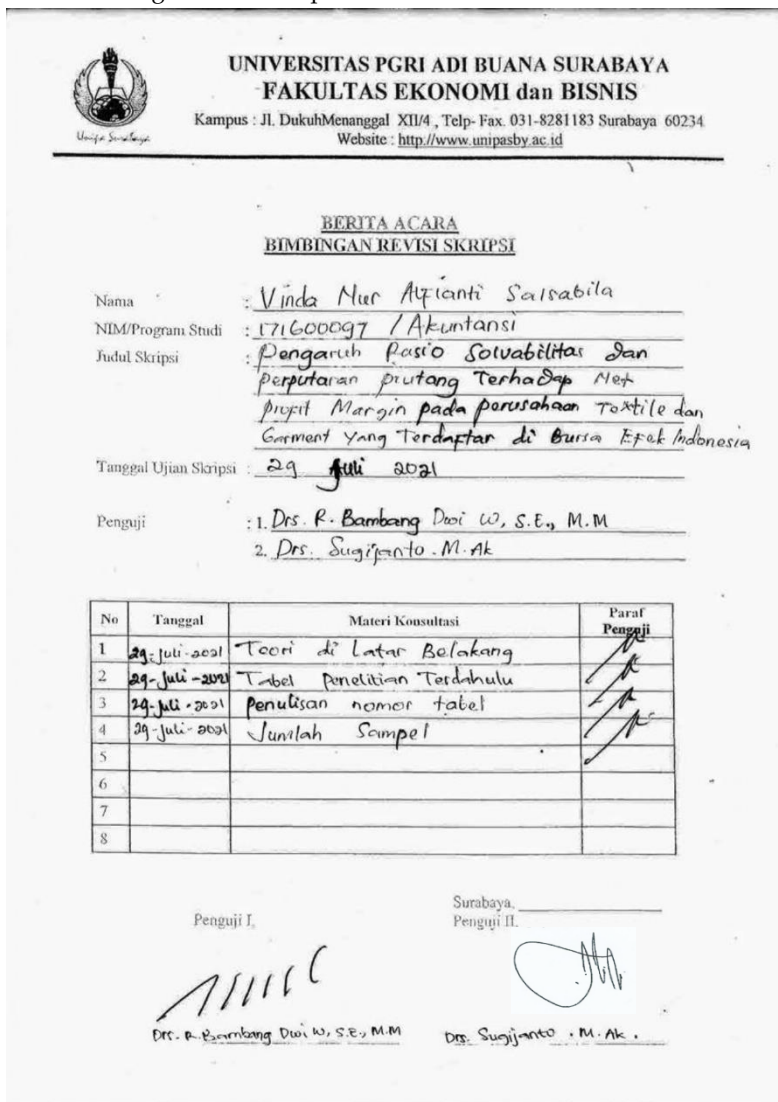 UNIVERSITAS PGRI ADI BUANA SURABAYA
FAKULTAS EKONOMI dan BISNIS
Kampus : Jl. DukuhMenanggal XII/4 , Telp- Fax. 031-8281183 Surabaya 60234
Website : http://www.unipasby.ac.id
Unipa Surabaya
BERITA ACARA
BIMBINGAN REVISI SKRIPSI
Nama : Vinda Nur Alfianti Salsabila
NIM/Program Studi : 171600097 / Akuntansi
Judul Skripsi : Pengaruh Rasio Solvabilitas dan
perputaran piutang Terhadap Net
profit Margin pada perusahaan Textile dan
Garment Yang Terdaftar di Bursa Efek Indonesia
Tanggal Ujian Skripsi : 29 Juli 2021
Penguji : 1. Drs. R. Bambang Dwi W, S.E., M.M
2. Drs. Sugijanto . M. Ak
No Tanggal Materi Konsultasi Paraf Penguji
1 29-Juli-2021 Teori di Latar Belakang
2 29-Juli-2021 Tabel Penelitian Terdahulu
3 29-Juli-2021 penulisan nomor tabel
4 29-Juli-2021 Jumlah Sampel
5
6
7
8
Surabaya,
Penguji I, Penguji II.
Drs. R. Bambang Dwi W, S.E., M.M Drs. Sugijanto . M. Ak .